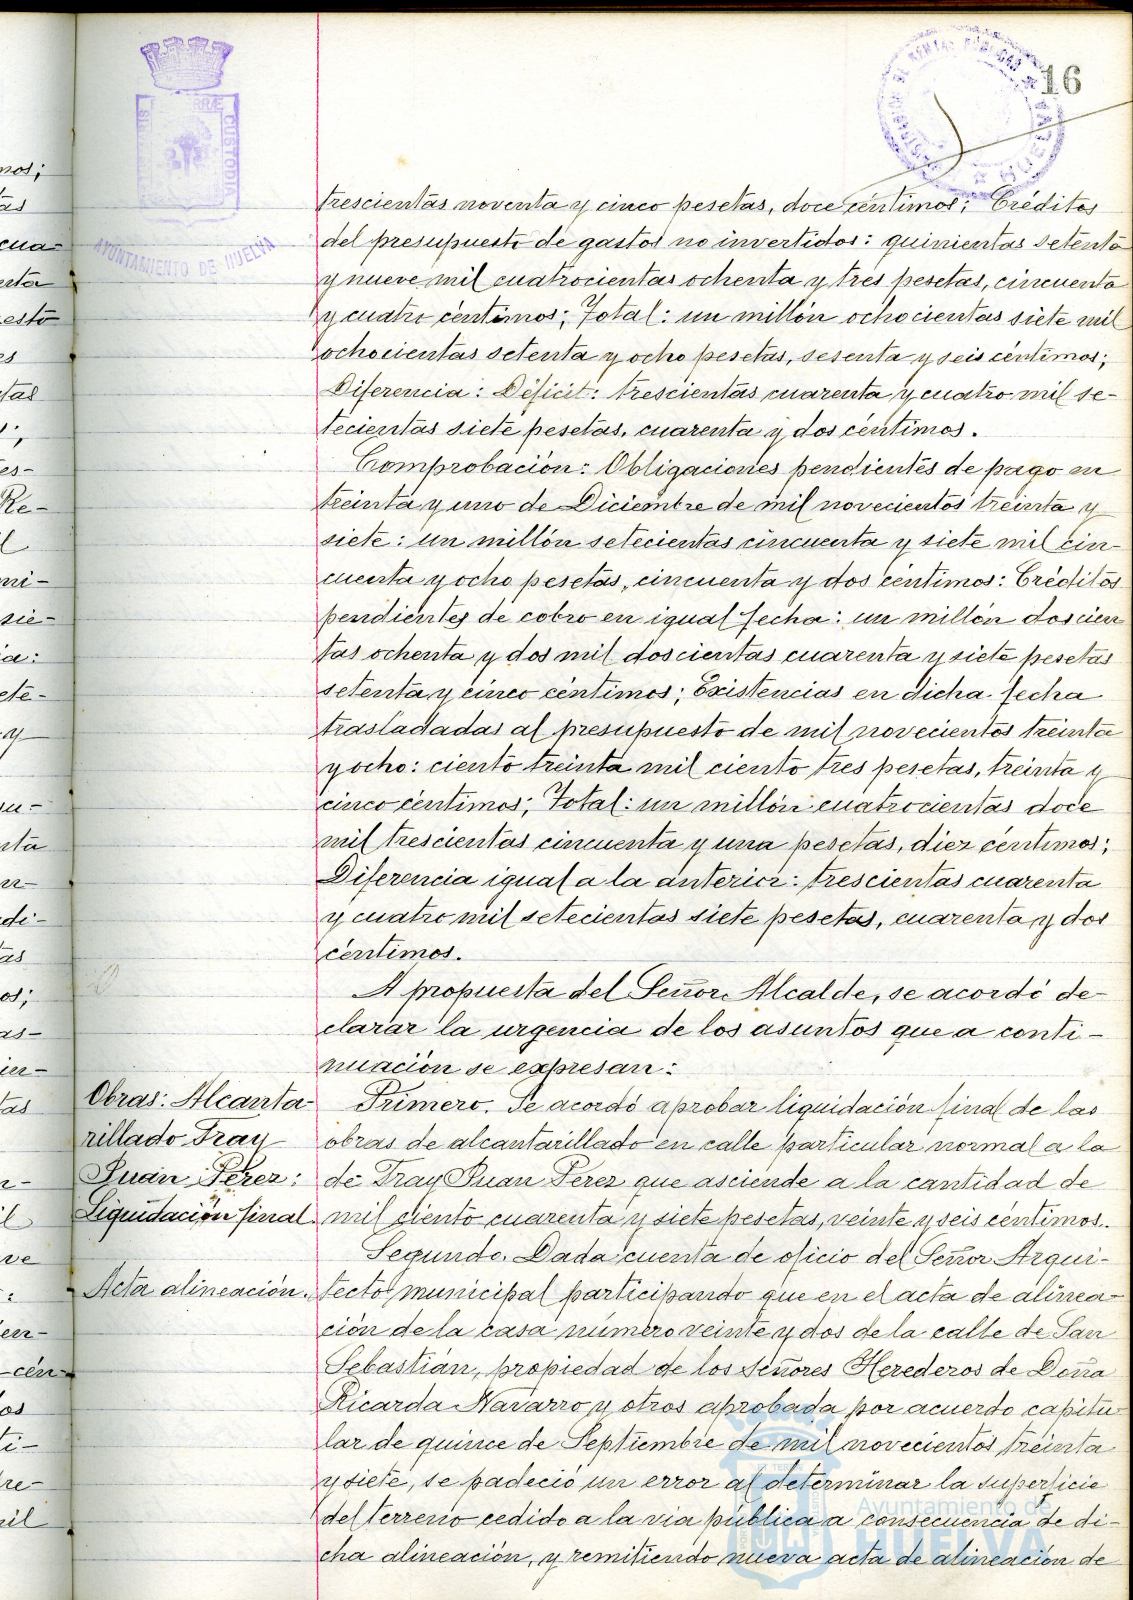 16
AYUNTAMIENTO DE HUELVA
CUSTODIA
HUELVA
trescientas noventa y cinco pesetas, doce céntimos; Créditos
del presupuesto de gastos no invertidos: quinientas setenta
y nueve mil cuatrocientas ochenta y tres pesetas, cincuenta
y cuatro céntimos; Total: un millón ochocientas siete mil
ochocientas setenta y ocho pesetas, sesenta y seis céntimos;
Diferencia: Déficit: trescientas cuarenta y cuatro mil se-
tecientas siete pesetas, cuarenta y dos céntimos.
Comprobación: Obligaciones pendientes de pago en
treinta y uno de Diciembre de mil novecientos treinta y
siete: un millón setecientas cincuenta y siete mil cin-
cuenta y ocho pesetas, cincuenta y dos céntimos: Créditos
pendientes de cobro en igual fecha: un millón doscien
tas ochenta y dos mil doscientas cuarenta y siete pesetas
setenta y cinco céntimos; Existencias en dicha fecha
trasladadas al presupuesto de mil novecientos treinta
y ocho: ciento treinta mil ciento tres pesetas, treinta y
cinco céntimos; Total: un millón cuatrocientas doce
mil trescientas cincuenta y una pesetas, diez céntimos;
Diferencia igual a la anterior: trescientas cuarenta
y cuatro mil setecientas siete pesetas, cuarenta y dos
céntimos.
A propuesta del Señor Alcalde, se acordó de-
clarar la urgencia de los asuntos que a conti-
nuación se expresan:
Obras: Alcanta-
rillado Fray
Juan Pérez:
Liquidación final.
Primero. Se acordó aprobar liquidación final de las
obras de alcantarillado en calle particular normal a la
de Fray Juan Pérez que asciende a la cantidad de
mil ciento cuarenta y siete pesetas, veinte y seis céntimos.
Acta alineación.
Segundo. Dada cuenta de oficio del Señor Arqui-
tecto municipal participando que en el acta de alinea-
ción de la casa número veinte y dos de la calle de San
Sebastián, propiedad de los señores Herederos de Doña
Ricarda Navarro y otros aprobada por acuerdo capitu-
lar de quince de Septiembre de mil novecientos treinta
y siete, se padeció un error al determinar la superficie
del terreno cedido a la via publica a consecuencia de di-
cha alineación, y remitiendo nueva acta de alineación de
Ayuntamiento de
HUELVA